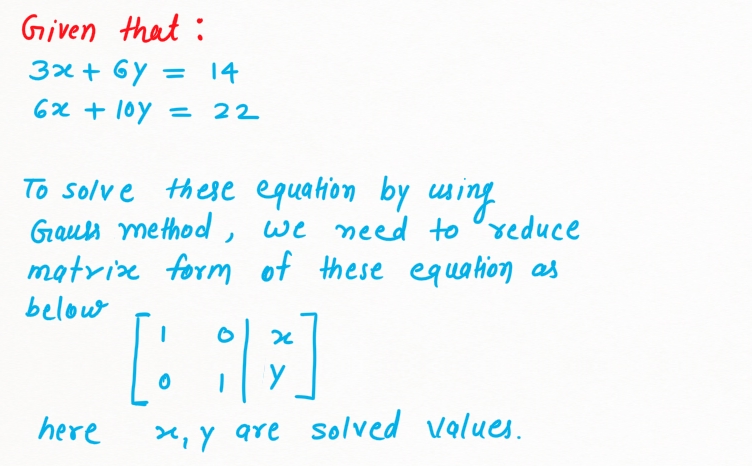 Given that :
3x + 6y = 14
6x + 10y = 22
To solve these equation by using
Gauss method, we need to reduce
matrix form of these equation as
below
[ 1 0 | x
0 1 | y ]
here x, y are solved values.